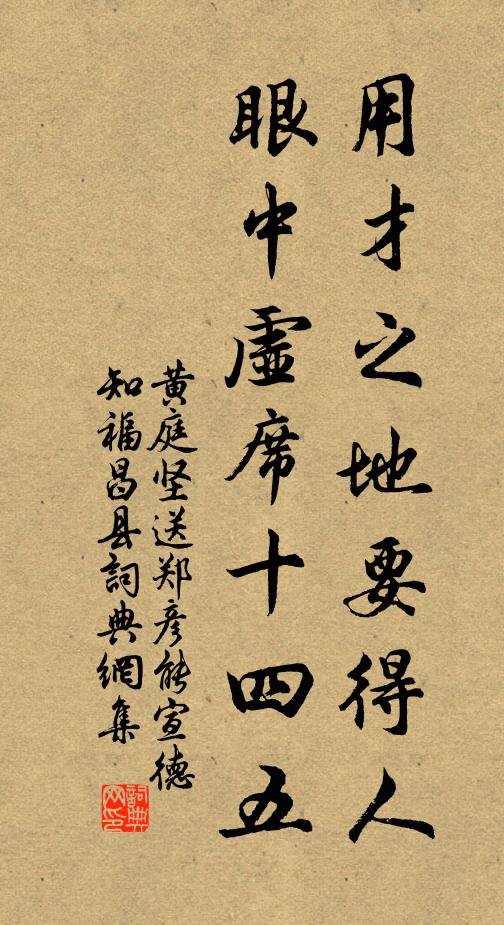 用才之地要得人
眼中虚席十四五
黄庭坚送郑彦能宣德
知福昌县詞典網集
詞典
网印